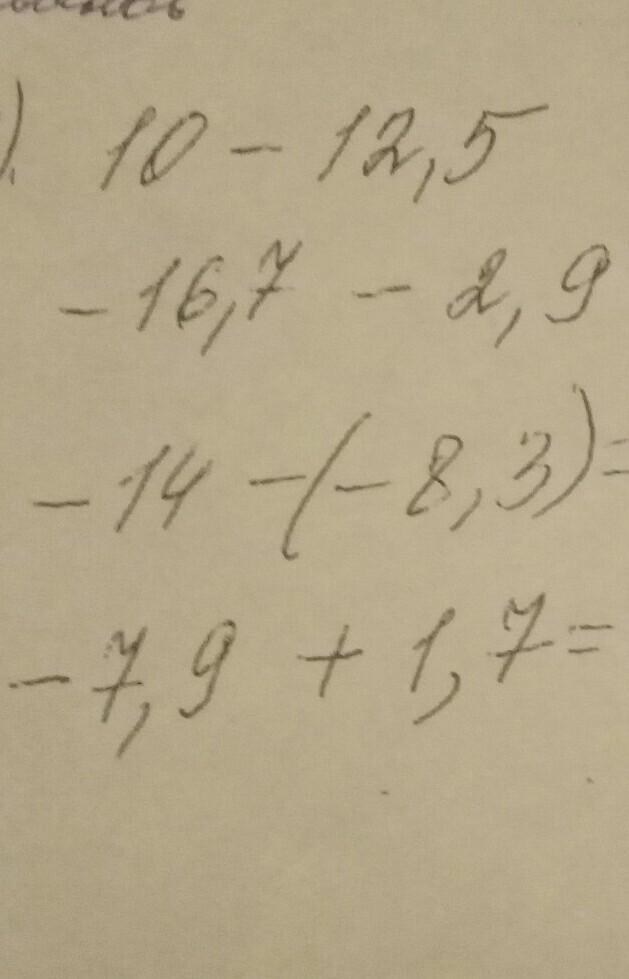 ). 10 - 12,5
-16,7 - 2,9
-14 -(-8,3)=
-7,9 + 1,7=